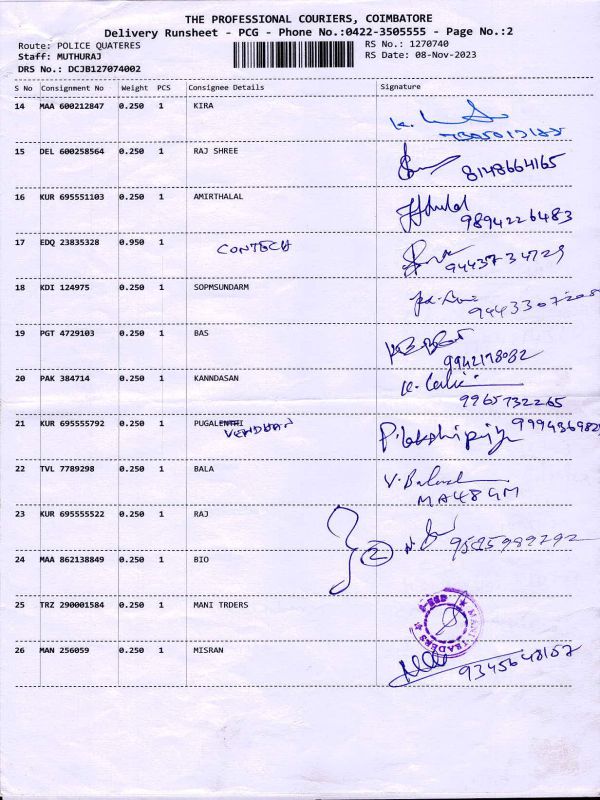 THE PROFESSIONAL COURIERS, COIMBATORE
Delivery Runsheet - PCG - Phone No.:0422-3505555 - Page No.:2
Route: POLICE QUATERES RS No.: 1270740
Staff: MUTHURAJ RS Date: 08-Nov-2023
DRS No.: DCJB127074002
S No Consignment No Weight PCS Consignee Details Signature
14 MAA 600212847 0.250 1 KIRA
15 DEL 600258564 0.250 1 RAJ SHREE
8148664165
16 KUR 695551103 0.250 1 AMIRTHALAL
9894226483
17 EDQ 23835328 0.950 1 CONTECH
9443734729
18 KDI 124975 0.250 1 SOPMSUNDARM
19 PGT 4729103 0.250 1 BAS
9942178082
20 PAK 384714 0.250 1 KANNDASAN
9965732265
21 KUR 695555792 0.250 1 PUGALENTHI
22 TVL 7789298 0.250 1 BALA
V. 
MA48GM
23 KUR 695555522 0.250 1 RAJ
2 9515989292
24 MAA 862138849 0.250 1 BIO
25 TRZ 290001584 0.250 1 MANI TRDERS
MANI TRADERS
26 MAN 256059 0.250 1 MISRAN
9345648157